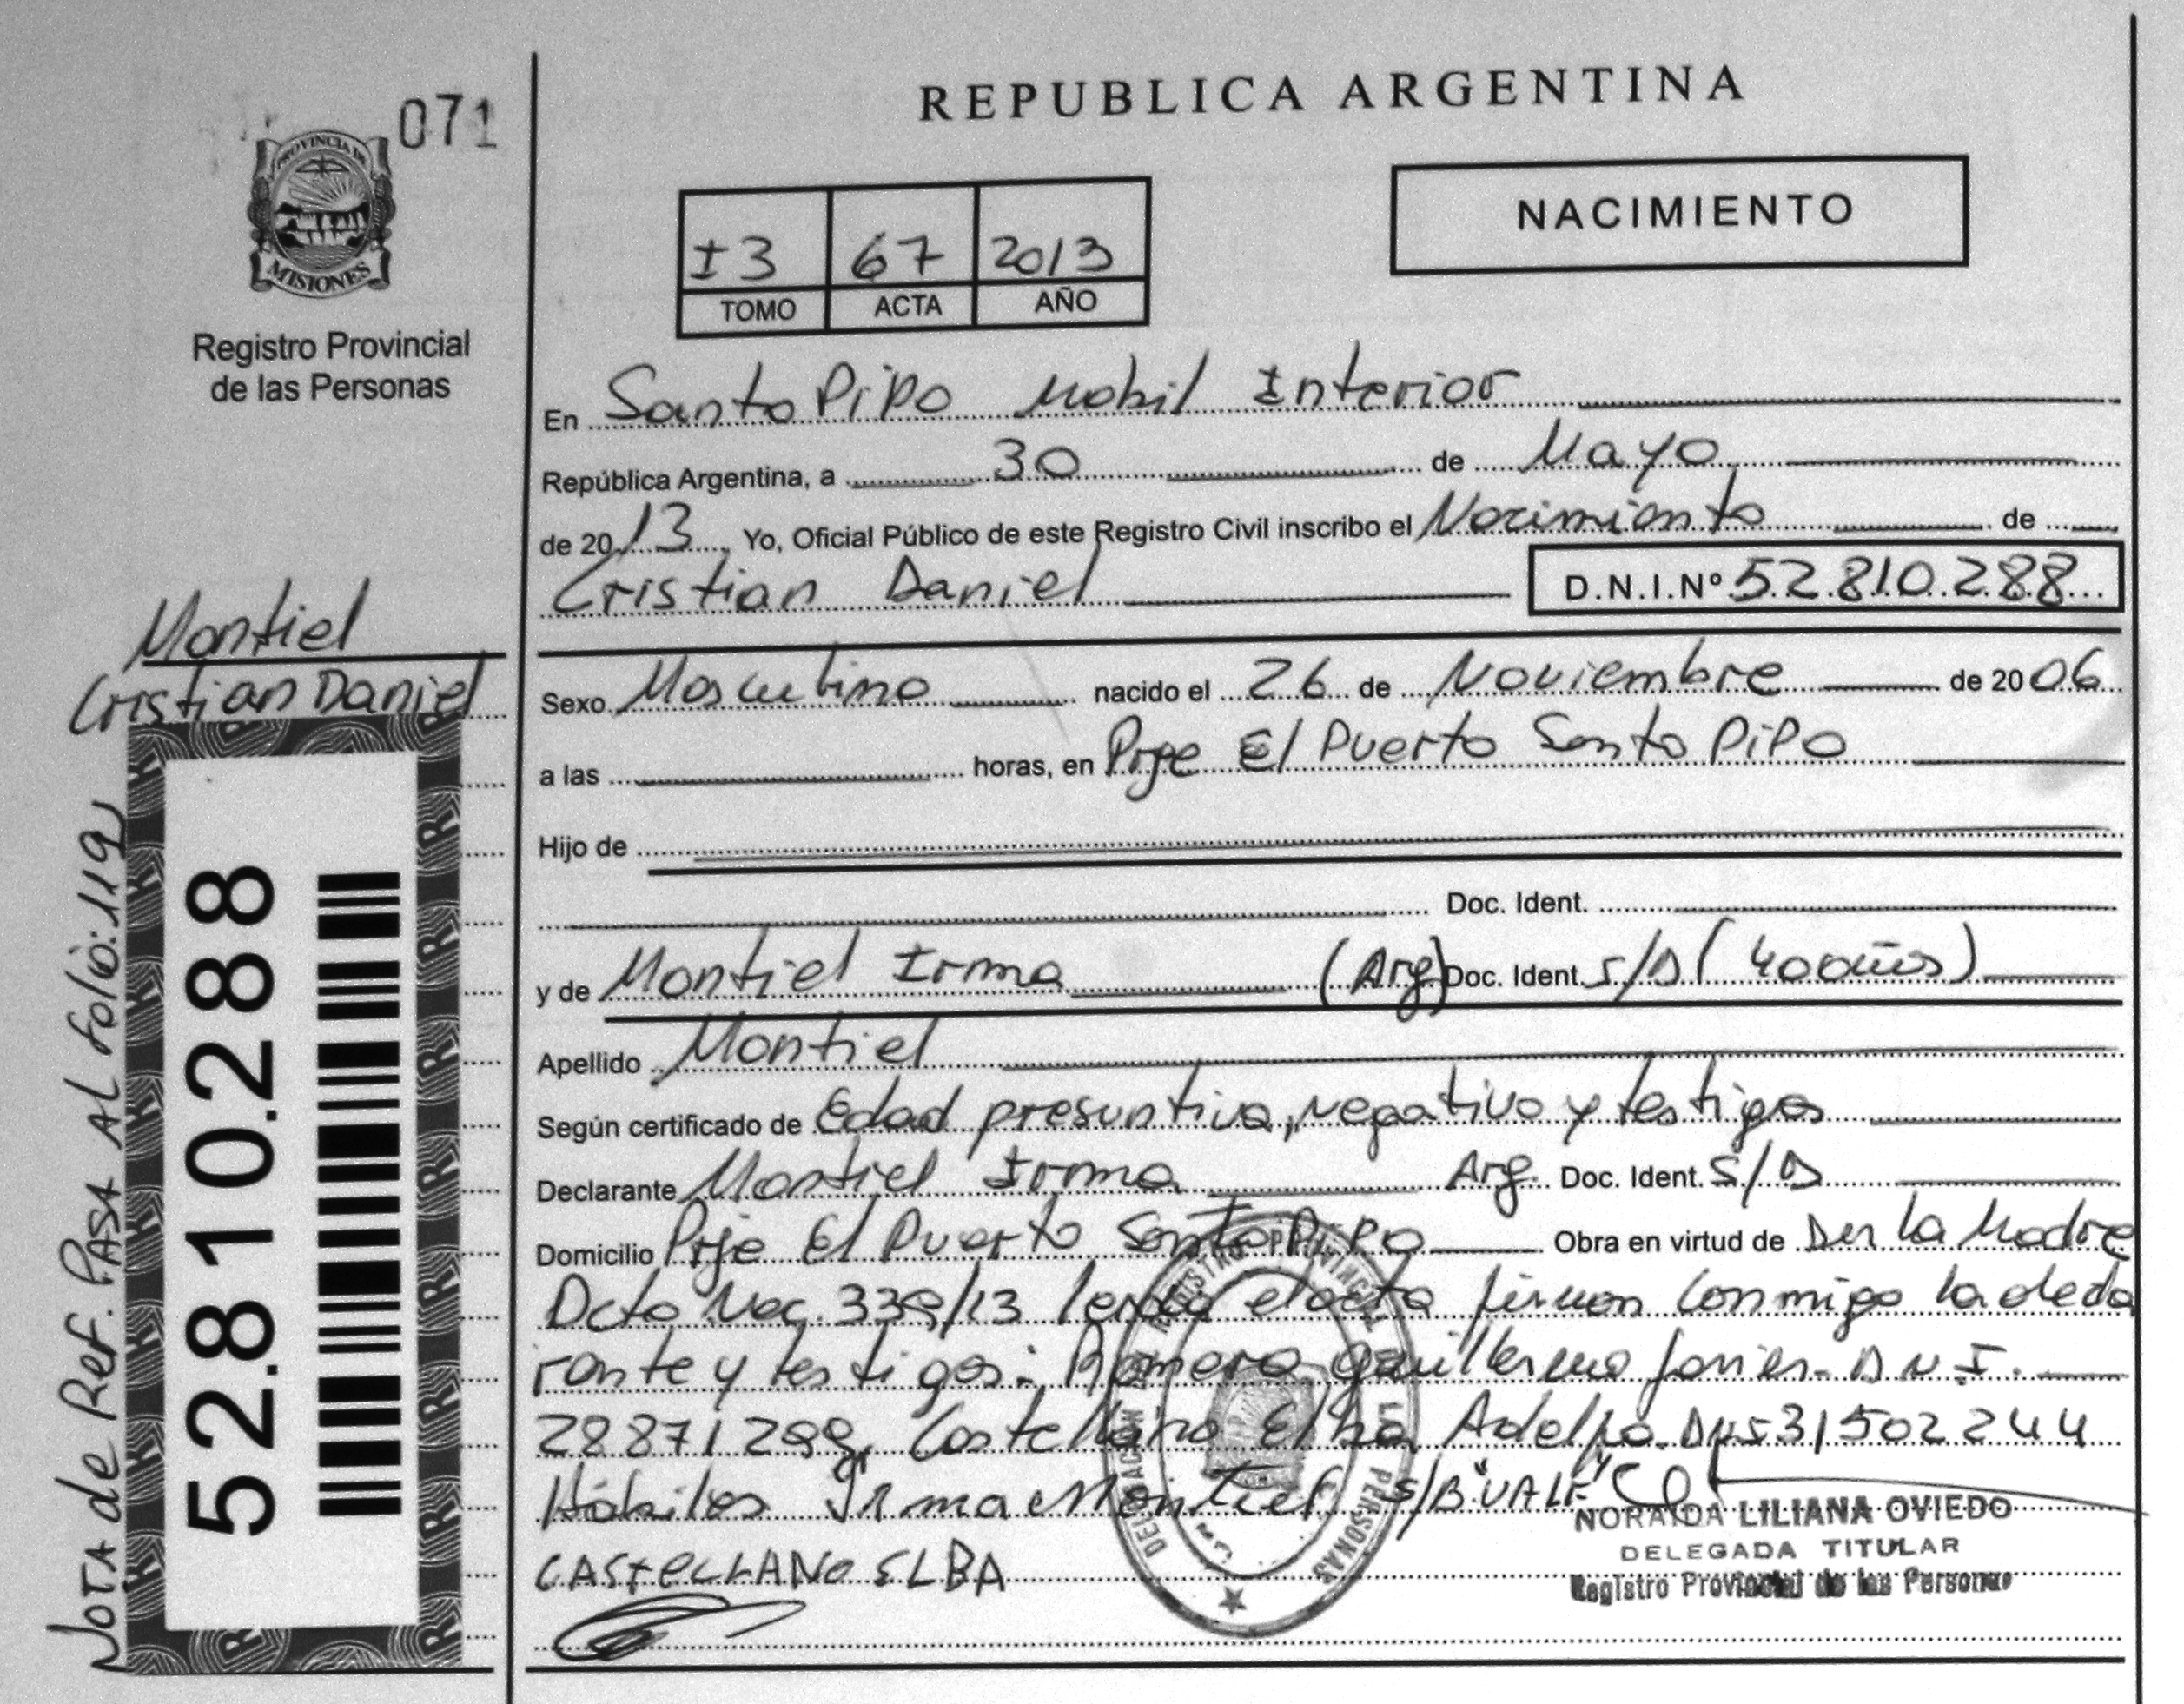 071
PROVINCIA DE
MISIONES
Registro Provincial
de las Personas
REPUBLICA ARGENTINA
NACIMIENTO
I3 67 2013
TOMO ACTA AÑO
En Santo Pipo Mobil Interior
República Argentina, a 30 de Mayo
de 2013 Yo, Oficial Público de este Registro Civil inscribo el Nacimiento de
Cristian Daniel D.N.I.Nº 52.810.288
Montiel
Cristian Daniel
Sexo Masculino nacido el 26 de Noviembre de 2006
a las horas, en Pje El Puerto Santo Pipo
Hijo de
Doc. Ident.
y de Montiel Irma (Arg) Doc. Ident. S/D (40 años)
Apellido Montiel
Según certificado de Edad presuntiva, negativo y testigos
Declarante Montiel Irma Arg. Doc. Ident. S/D
Domicilio Pje El Puerto Santo Pipo Obra en virtud de Ser la Madre
Dcto Nac. 339/13 leída el acta firman conmigo la decla
rante y testigos: Romero Guillermo Javier D N I.
28871299, Castellano Elba Adelfa DNI 31502244
Hábiles Irma Montiel S/B "VALE"
CASTELLANO ELBA
NORAIDA LILIANA OVIEDO
DELEGADA TITULAR
Registro Provincial de las Personas
REGISTRO PROVINCIAL DE LAS PERSONAS
DELEGACION
52.810.288
NOTA de Ref. PASA AL folio: 119